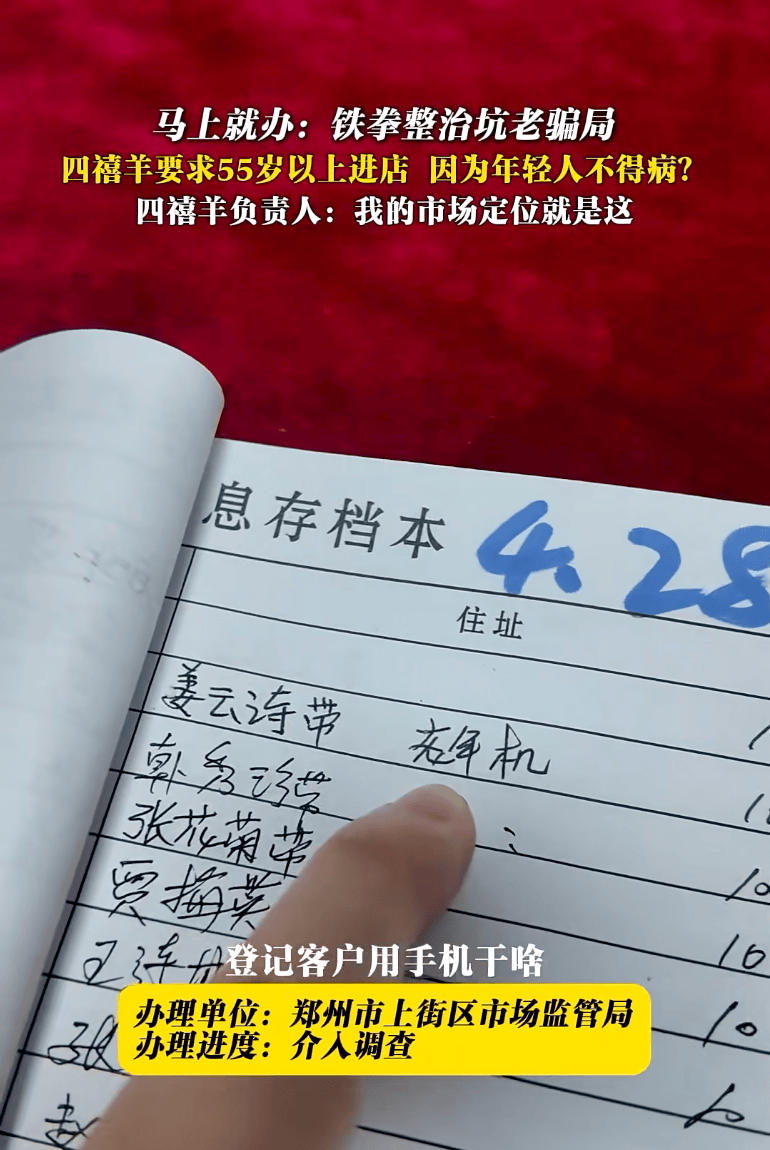 马上就办：铁拳整治坑老骗局
四禧羊要求55岁以上进店 因为年轻人不得病？
四禧羊负责人：我的市场定位就是这
息存档本 4.28
住址
姜云涛带 老年机
张花菊带
贾梅英
登记客户用手机干啥
办理单位：郑州市上街区市场监管局
办理进度：介入调查